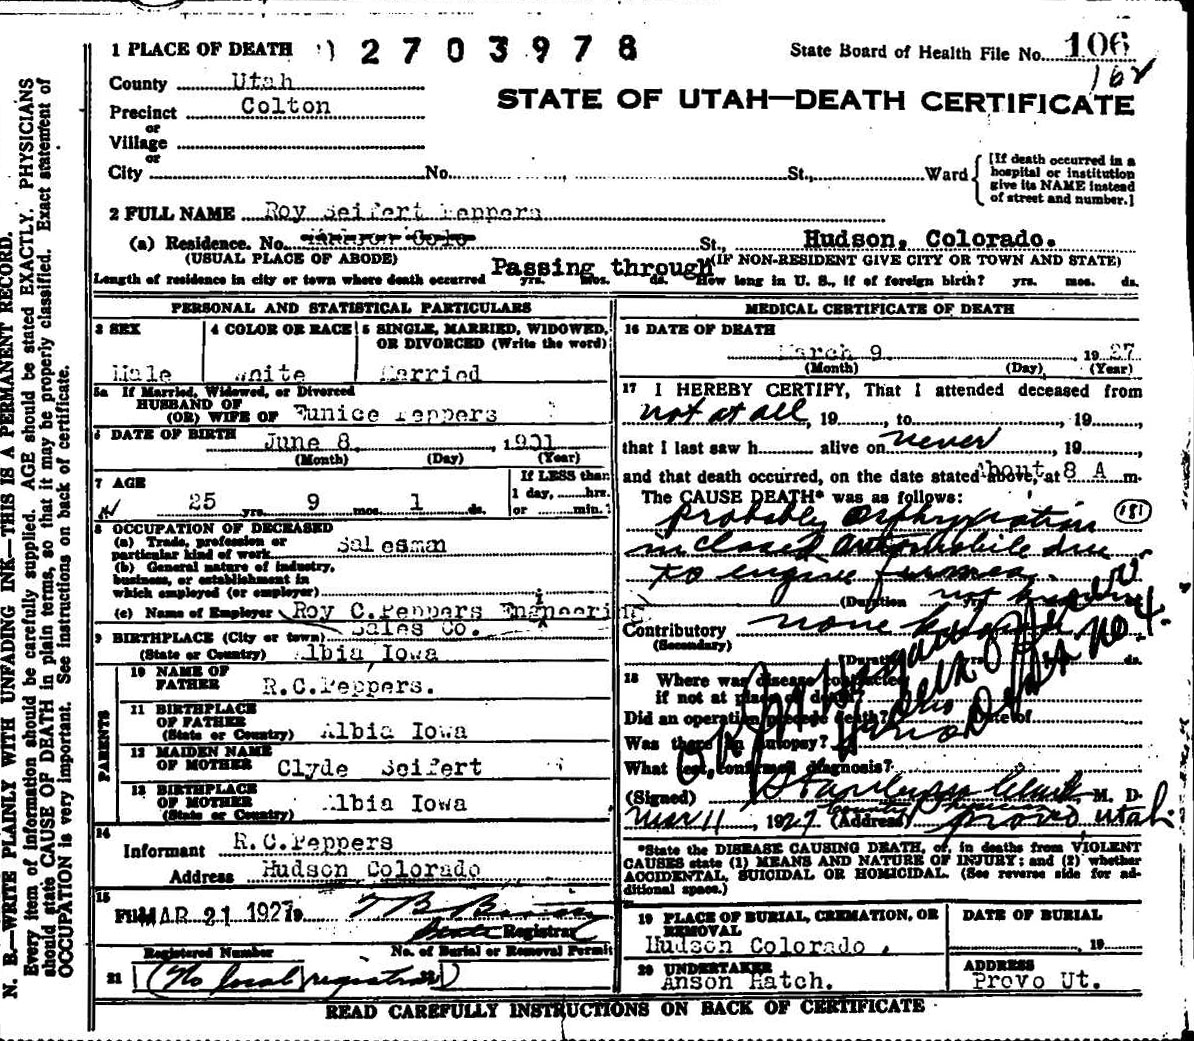 1 PLACE OF DEATH 2703978
State Board of Health File No. 106
162
County Utah
STATE OF UTAH—DEATH CERTIFICATE
Precinct Colton
or
Village
or
City No. St., Ward
[If death occurred in a
hospital or institution
give its NAME instead
of street and number.]
2 FULL NAME Roy Seifert Peppers
(a) Residence. No. St., Hudson, Colorado.
(USUAL PLACE OF ABODE) (IF NON-RESIDENT GIVE CITY OR TOWN AND STATE)
Length of residence in city or town where death occurred Passing through yrs. mos. ds. How long in U. S., if of foreign birth? yrs. mos. ds.
PERSONAL AND STATISTICAL PARTICULARS
3 SEX
Male
4 COLOR OR RACE
White
5 SINGLE, MARRIED, WIDOWED,
OR DIVORCED (Write the word)
Married
5a If Married, Widowed, or Divorced
HUSBAND OF
(OR) WIFE OF Eunice Peppers
6 DATE OF BIRTH June 8, 1901
(Month) (Day) (Year)
7 AGE
25 yrs. 9 mos. 1 ds.
If LESS than
1 day, hrs.
or min.?
8 OCCUPATION OF DECEASED
(a) Trade, profession or
particular kind of work Salesman
(b) General nature of industry,
business, or establishment in
which employed (or employer)
(c) Name of Employer Roy C.Peppers Engineering
Sales Co.
9 BIRTHPLACE (City or town)
(State or Country) Albia, Iowa
PARENTS
10 NAME OF
FATHER R.C.Peppers.
11 BIRTHPLACE
OF FATHER
(State or Country) Albia Iowa
12 MAIDEN NAME
OF MOTHER Clyde Seifert
13 BIRTHPLACE
OF MOTHER
(State or Country) Albia Iowa
14
Informant R.C.Peppers
Address Hudson Colorado
15
Filed MAR 21 1927
State Registrar
Registered Number No. of Burial or Removal Permit
21 (No local registrar) 22
MEDICAL CERTIFICATE OF DEATH
16 DATE OF DEATH
March 9, 1927
(Month) (Day) (Year)
17 I HEREBY CERTIFY, That I attended deceased from
not at all, 19, to, 19,
that I last saw h alive on never, 19,
and that death occurred, on the date stated above, at About 8 A m.
The CAUSE DEATH* was as follows:
probably asphyxiation 181
in closed automobile due
to engine fumes.
(Duration not known
Contributory none known
(Secondary)
(Duration ds.
18 Where was disease contracted
if not at place of death?
Did an operation precede death? Date of
Was there an autopsy?
What test confirmed diagnosis?
(Signed) M. D.
Mar 11, 1927 (Address) County Physician Provo, Utah
*State the DISEASE CAUSING DEATH, or, in deaths from VIOLENT
CAUSES state (1) MEANS AND NATURE OF INJURY; and (2) whether
ACCIDENTAL, SUICIDAL OR HOMICIDAL. (See reverse side for ad-
ditional space.)
19 PLACE OF BURIAL, CREMATION, OR
REMOVAL
Hudson Colorado.
DATE OF BURIAL
, 19
20 UNDERTAKER
Anson Hatch.
ADDRESS
Provo Ut.
READ CAREFULLY INSTRUCTIONS ON BACK OF CERTIFICATE
N. B.—WRITE PLAINLY WITH UNFADING INK—THIS IS A PERMANENT RECORD.
Every item of information should be carefully supplied. AGE should be stated EXACTLY. PHYSICIANS
should state CAUSE OF DEATH in plain terms, so that it may be properly classified. Exact statement of
OCCUPATION is very important. See instructions on back of certificate.